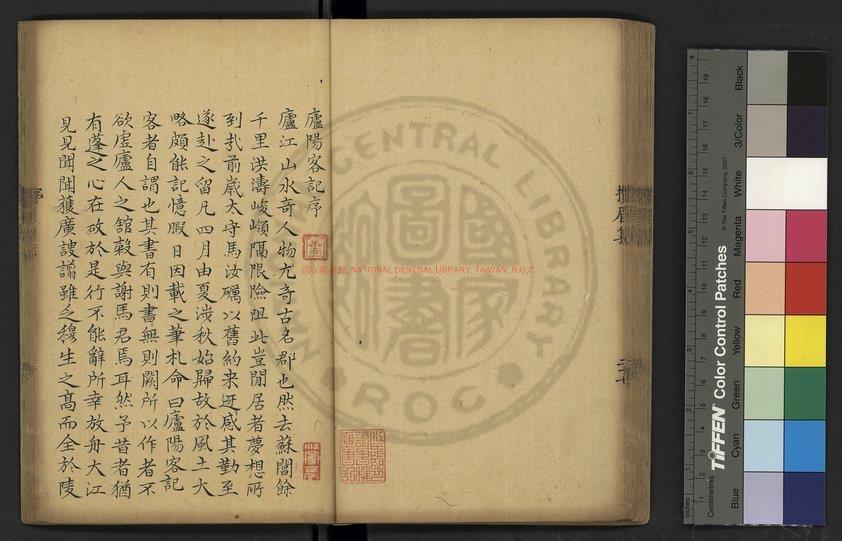 廬陽客記序
廬江山水奇人物尤奇古名郡也然去蘇閶餘
千里洪濤峻嶺隔限險阻此豈閒居者夢想所
到哉前嵗太守馬汝礪以舊約来迓感其勤至
遂赴之留凡四月由夏涉秋始歸故於風土大
略頗能記憶暇日因載之筆札命曰廬陽客記
客者自謂也其書有則書無則闕所以作者不
欲虗廬人之舘榖與謝馬君焉耳然予昔者猶
有蓬之心在故於是行不能辭所幸放舟大江
見見聞聞獲廣謏譾雖乏穆生之高而全於陵
國家圖書館 NATIONAL CENTRAL LIBRARY, TAIWAN, R.O.C
NATIONAL CENTRAL LIBRARY
R.O.C
國家圖書館
TIFFEN Color Control Patches
© The Tiffen Company, 2007
Centimetres
Inches
Blue
Cyan
Green
Yellow
Red
Magenta
White
3/Color
Black